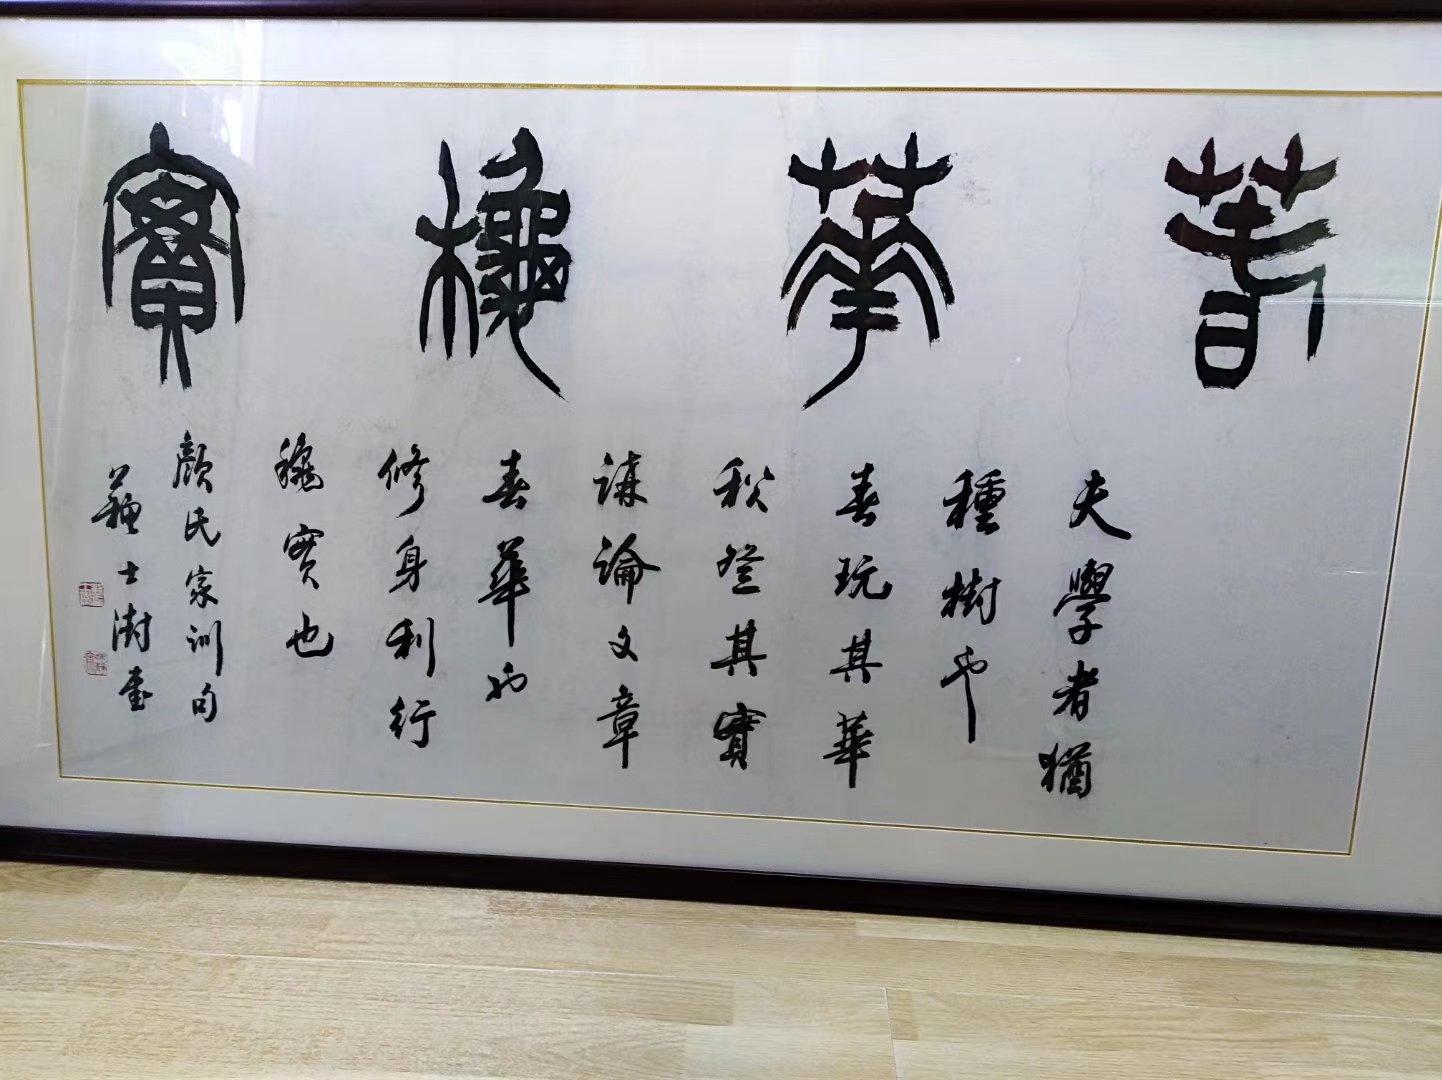 萅華龝實
夫學者猶
種樹也
春玩其華
秋登其實
講論文章
春華也
修身利行
穐實也
顏氏家訓句
蘇士澍書